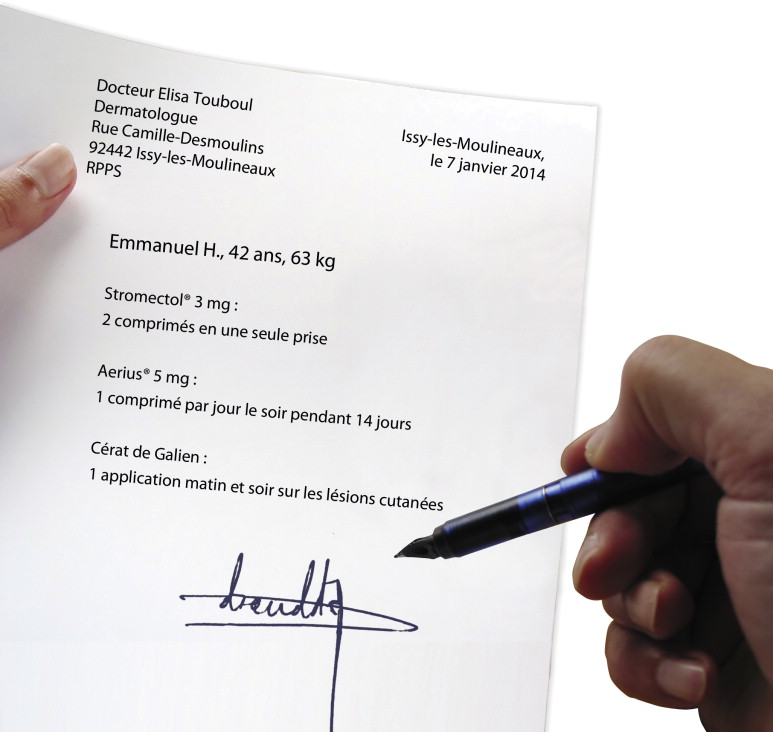 Docteur Elisa Touboul
Dermatologue
Rue Camille-Desmoulins
92442 Issy-les-Moulineaux
RPPS
Issy-les-Moulineaux,
le 7 janvier 2014
Emmanuel H., 42 ans, 63 kg
Stromectol® 3 mg :
2 comprimés en une seule prise
Aerius® 5 mg :
1 comprimé par jour le soir pendant 14 jours
Cérat de Galien :
1 application matin et soir sur les lésions cutanées